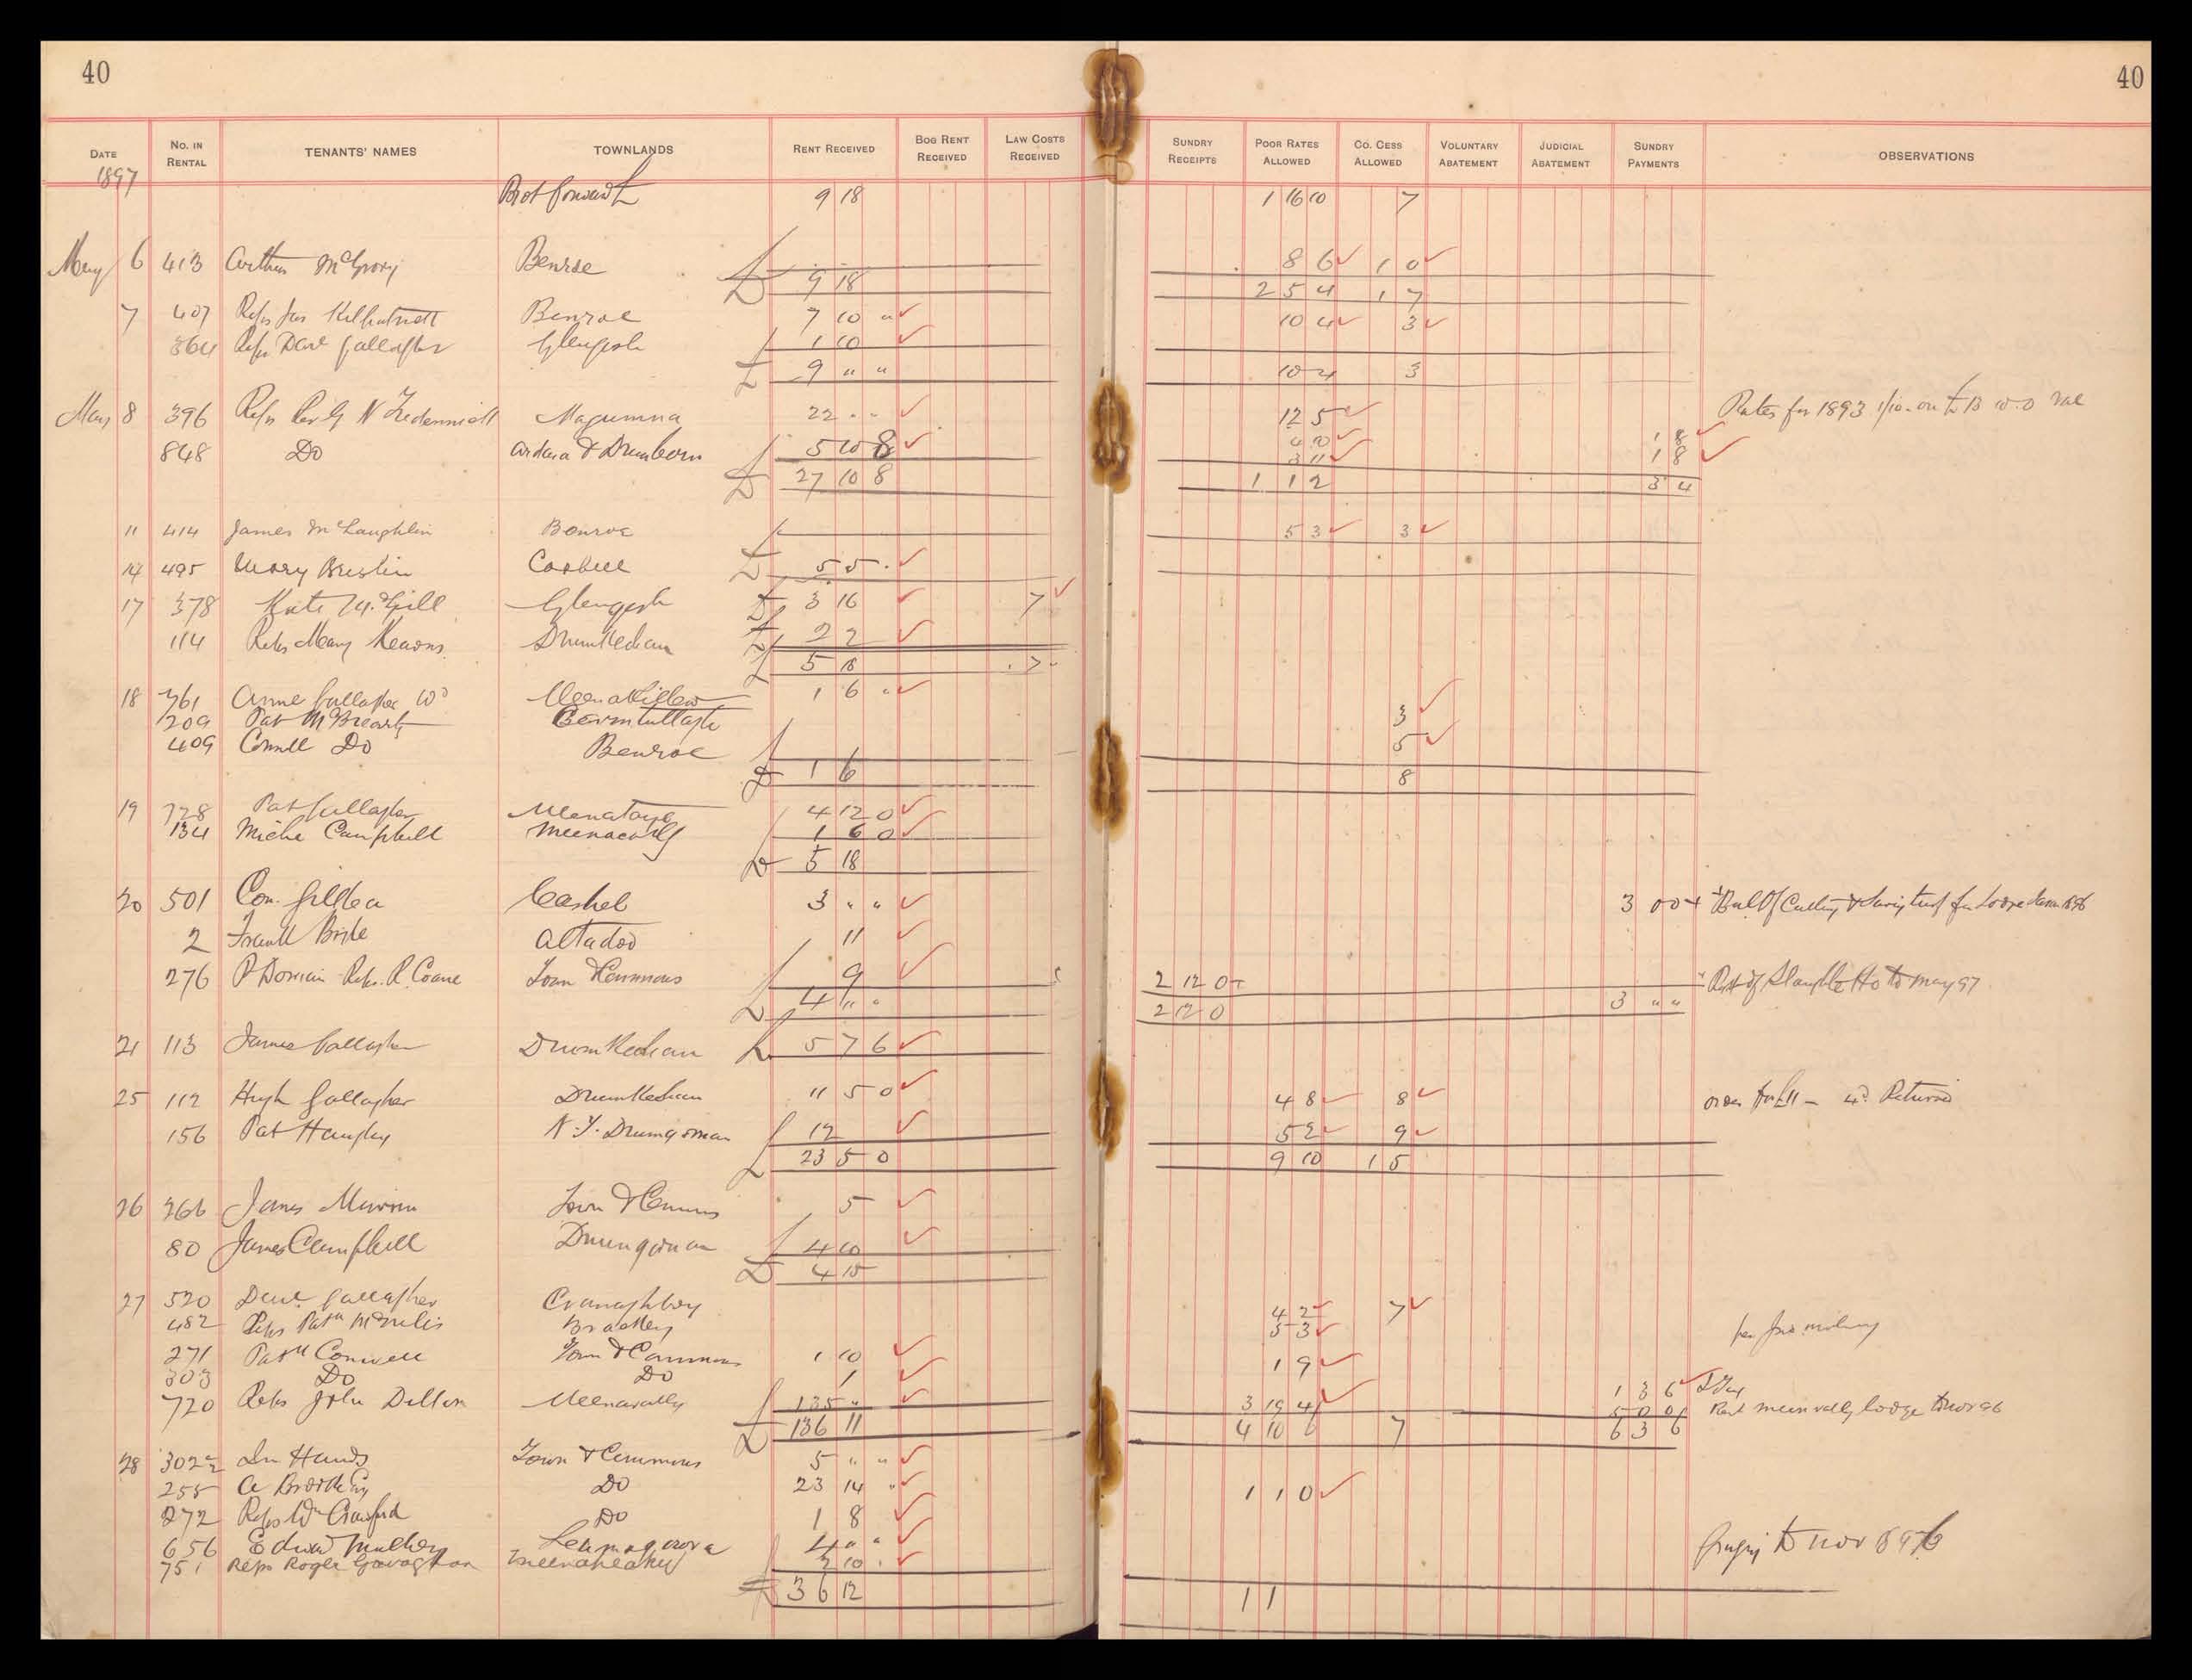 40 40
DATE No. IN RENTAL TENANTS' NAMES TOWNLANDS RENT RECEIVED BOG RENT RECEIVED LAW COSTS RECEIVED SUNDRY RECEIPTS POOR RATES ALLOWED CO. CESS ALLOWED VOLUNTARY ABATEMENT JUDICIAL ABATEMENT SUNDRY PAYMENTS OBSERVATIONS
1897
Brot forward 9 18 1 16 10 7
May 6 413 Arthur McGrory Benroe 8 6 1 0
£ 9 18 2 5 4 1 7
7 407 Reps Jas Kilpatrick Benroe 7 10 " 10 4 3
364 Reps Danl Gallagher Glengesh 1 10
£ 9 " " 10 4 3
May 8 396 Reps N Tredennick Magumna 22 - - 12 5 1 8 Rates for 1893 1/10 on £13
848 Do Ardara & Drumbarn 5 10 8 4 10 1 8
3 11
£ 27 10 8 1 1 2 3 4
11 414 James McLaughlin Benroe 5 3 3
14 495 Mary Breslin Corkill £ 5 5 -
17 378 Kate McGill Glengesh £ 3 16 7
114 Reps Mary Kearns Drumkedian £ 2 2
£ 5 18 7
18 761 Anne Gallagher Wd 1 6 "
209 Pat McBrearty 3
409 Connell Do Benroe 5
£ 1 6 8
19 728 Pat Gallagher 4 12 0
134 Michl Campbell Meenacarly 1 6 0
£ 5 18
20 501 Con. Gildea Cashel 3 " " 3 0 0 + + Bal of Cutting & Saving turf for Lodge
2 Frank Boyle Altadoo 11
276 P Dorrian Reps. R. Coane Town & Commons 9 2 12 0 + Rent of Slaughter Ho to May 97
£ 4 " " 2 12 0 3 " "
21 113 James Gallagher Drumkedian £ 5 7 6
25 112 Hugh Gallagher Drumkedian 11 5 0 4 8 8 order for £11 - 4d. Returned
156 Pat Haughey N.T. Drumgorman 12 5 2 9
£ 23 5 0 9 10 1 5
26 266 James Town & Commons 5
80 James Campbell Drumgorman 4 10
£ 4 15
27 520 Danl Gallagher Cranaghboy 4 2 7
482 Reps Patk McNelis Brackey 5 3 per Jno
271 Patk Conwell Town & Commons 1 10 1 9
303 Do Do 1
720 Reps John Dillon Meenavally 135 " 3 19 4 1 3 6 I Tax
5 0 0 Rent Meenavally lodge to Nov 96
£ 136 11 4 10 6 7 6 3 6
28 302½ In Hands Town & Commons 5 " "
255 A Brooke Esq Do 23 14 " 1 1 0
272 Reps Wm Crawford Do 1 8
656 Edward 4 " " Grazing to Nov 1896
751 Reps Roger 2 10 "
£ 36 12 1 1